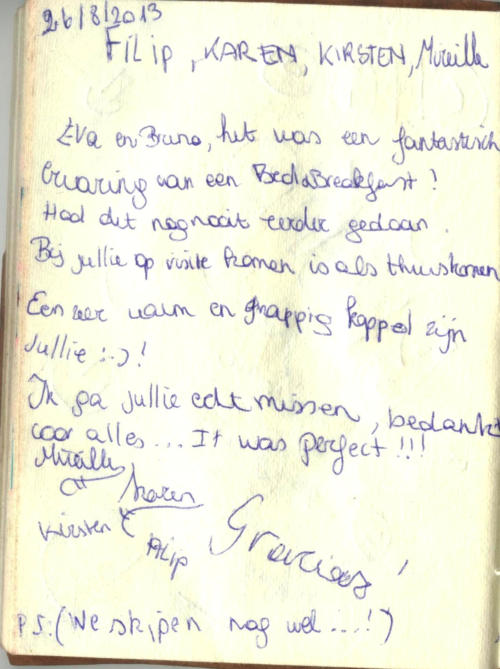 26/8/2013
Filip, KAREN, KIRSTEN, Mireille
Eva en Bruno, het was een fantastisch
ervaring van een Bed&Breakfast!
Had dit nog nooit eerder gedaan.
Bij jullie op visite komen is als thuiskomen
Een zeer warm en grappig koppel zijn
jullie :-)!
Ik ga jullie echt missen, bedankt
voor alles... It was perfect!!!
Mireille
Karen
Kirsten Filip
Gracias!
PS: (We skypen nog wel...!)